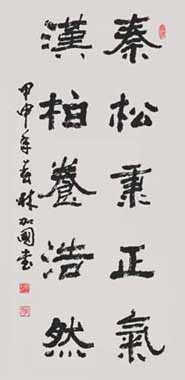 秦松秉正氣
漢柏養浩然
甲申年林加國書